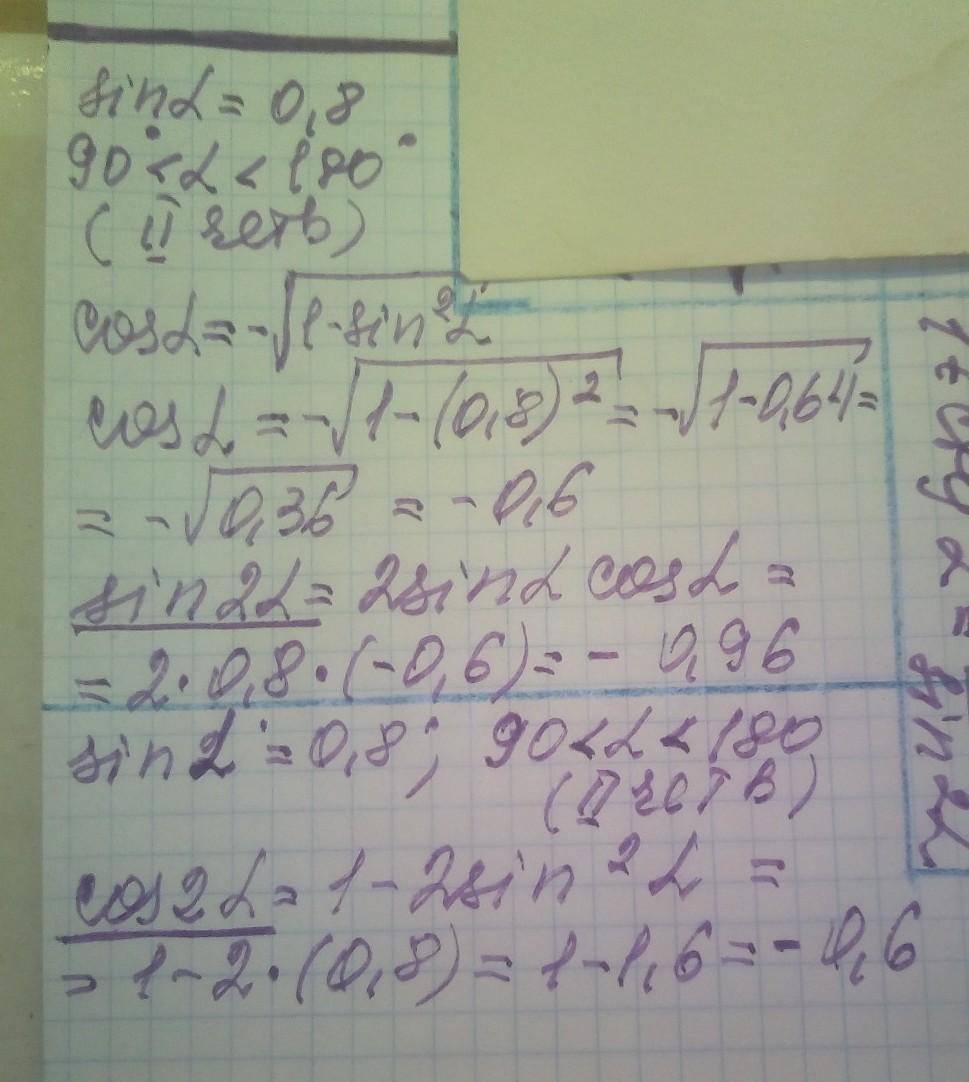 sinα = 0,8
90° < α < 180°
( II четв)
cosα = -√1-sin²α
cosα = -√1-(0,8)² = -√1-0,64 =
= -√0,36 = -0,6
sin2α = 2sinα cosα =
= 2·0,8·(-0,6) = - 0,96
sinα = 0,8 ; 90 < α < 180
(II четв)
cos2α = 1-2sin²α =
= 1-2·(0,8) = 1-1,6 = -0,6
1+ctg²α = 1/sin²α